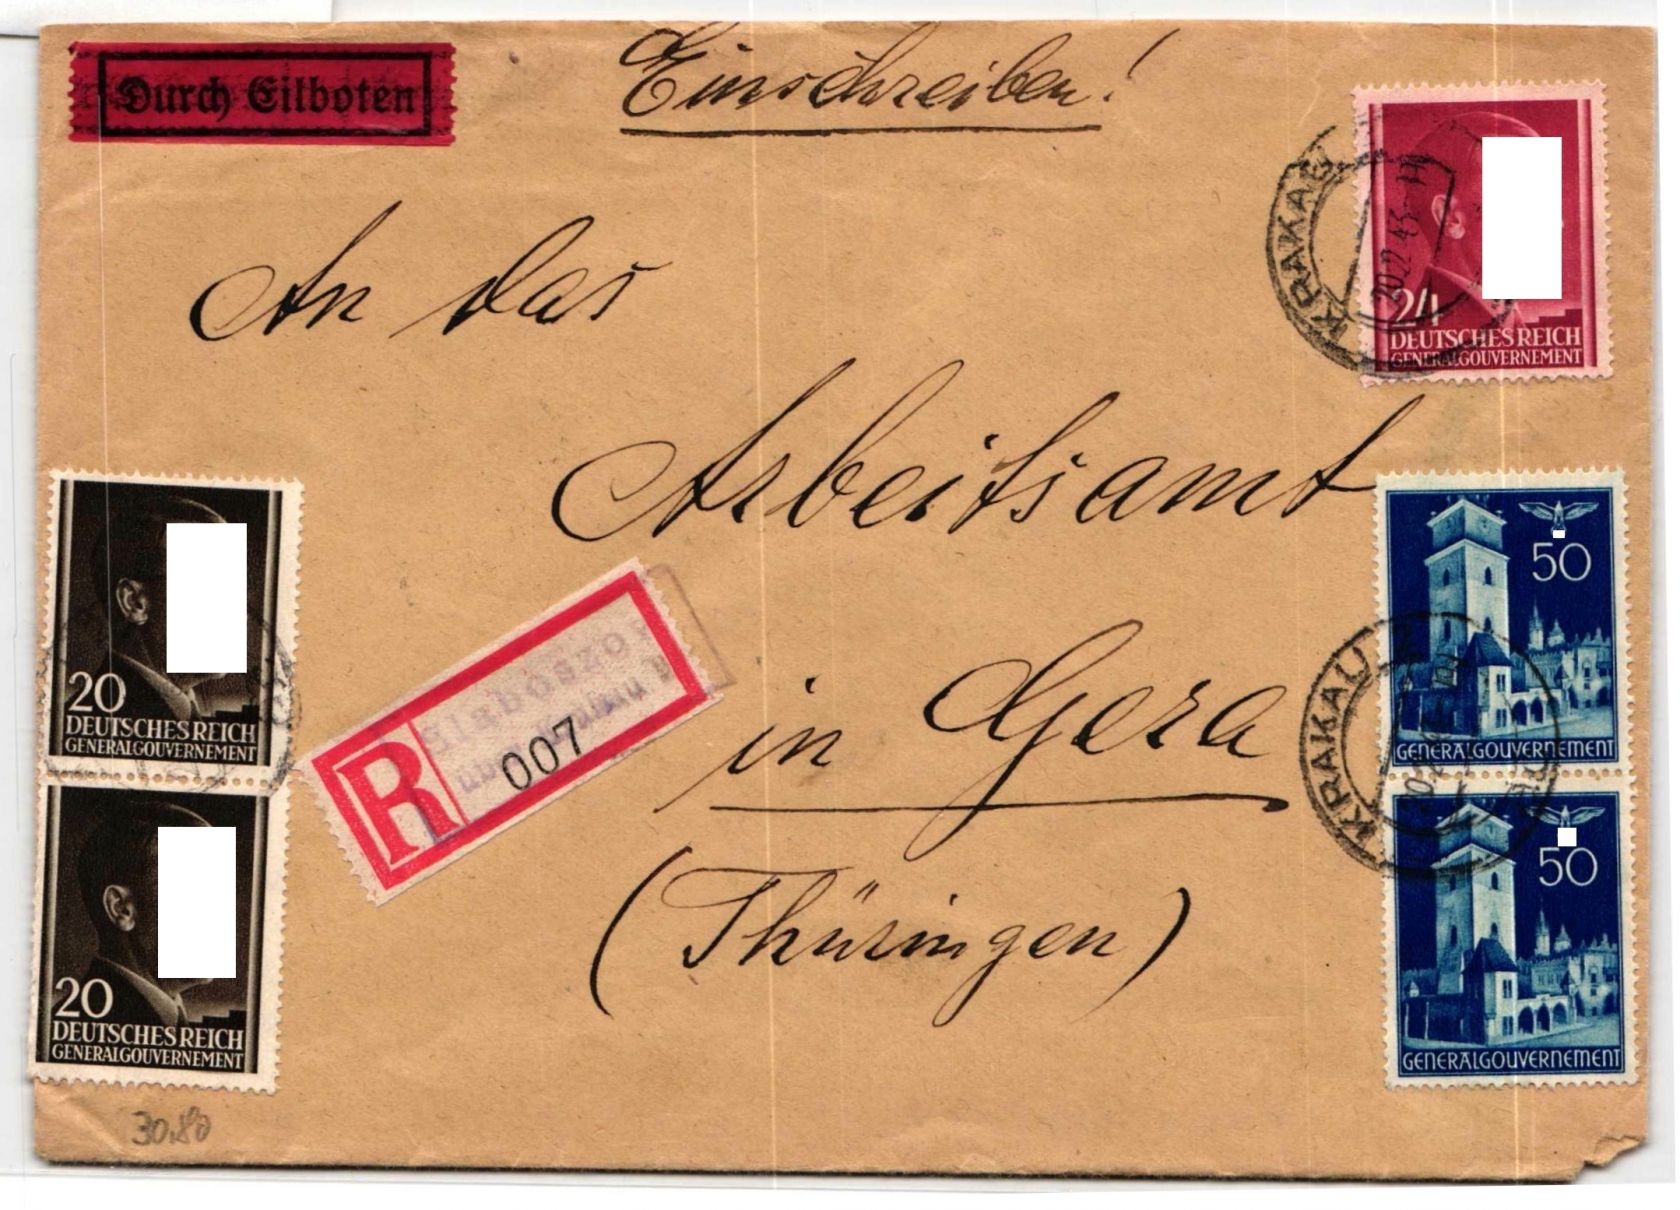 Durch Eilboten
Einschreiben!
An das
Arbeitsamt
in Gera
(Thüringen)
24
DEUTSCHES REICH
GENERALGOUVERNEMENT
KRAKAU
20.12.43
50
GENERALGOUVERNEMENT
KRAKAU
50
GENERALGOUVERNEMENT
20
DEUTSCHES REICH
GENERALGOUVERNEMENT
20
DEUTSCHES REICH
GENERALGOUVERNEMENT
R
007
30.80